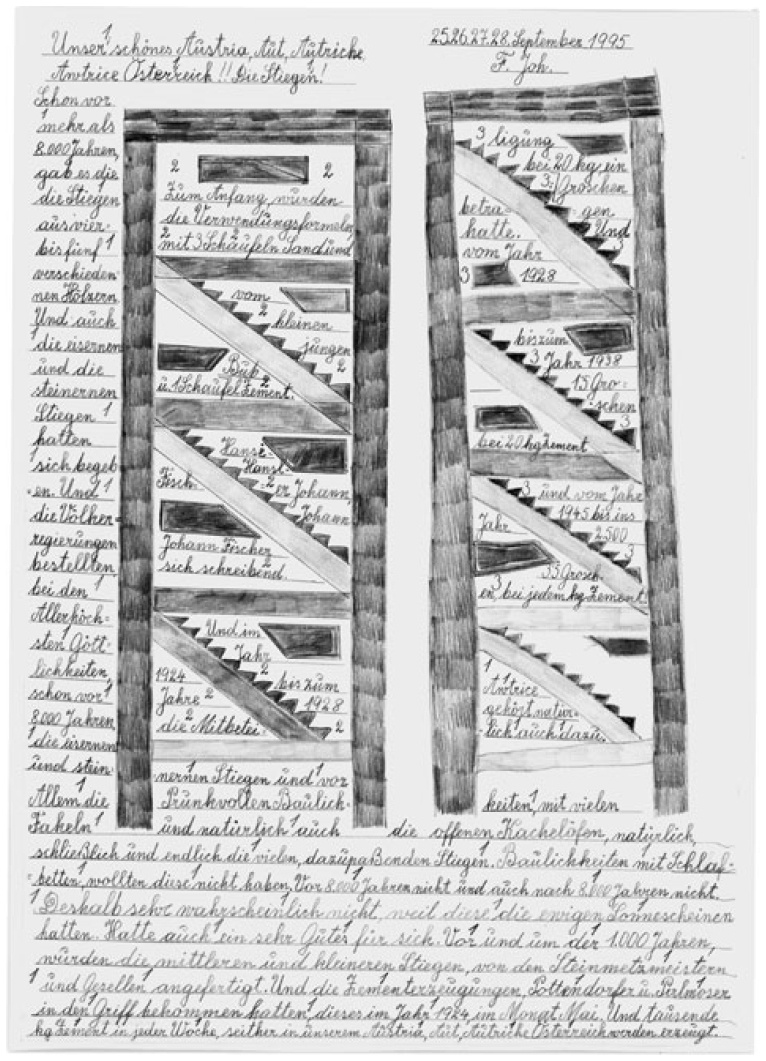 Unser 1 schönes Austria, Aut, Autriche,
Autrice Österreich!! Die Stiegen!
25.26.27.28. September 1995
F. Joh.
Schon vor
1 mehr als
8.000 Jahren,
gab es die
die Stiegen
aus vier-
bis fünf 1
verschieden-
nen Hölzern.
Und auch
1 die eisernen
und die
steinernen
Stiegen 1
hatten
1 sich begeb-
=en. Und 1
die Völker=
regierungen
bestellten
bei den 1
Allerhöch-
sten Gött-
lichkeiten,
schon vor 1
8.000 Jahren,
1 die eisernen
und stein-
2 2
Zum Anfang, wurden
die Verwendungsformeln
2 mit 3 Schaufeln Sand und
vom
2 kleinen
jungen
Bub 2
u. 1 Schaufel Zement.
Hansi-
Hansl-
Fisch- 2 er Johann,
Johann
Johann Fischer
sich schreibend. 2
Und im
Jahr
1924 2 bis zum
Jahre 2 1928
die Mitbetei- 2
3 ligung
bei 20 kg ein
3. Groschen
betra- gen
hatte. Und
vom Jahr 3
3 1928
bis zum
3 Jahr 1938
15 Gro-
schen
3
bei 20 kg Zement
3 und vom Jahr
1945 bis ins
Jahr 2500
3
3 35 Grosch-
en, bei jedem kg Zement!
1
Autrice
gehört natür-
lich auch dazu.
nernen Stiegen und vor
Allem die Prunkvollen Baulich- keiten, mit vielen
Fakeln 1 und natürlich auch die offenen Kachelöfen, natürlich,
schließlich und endlich die vielen, dazupaßenden Stiegen. 1 Baulichkeiten mit Schlaf-
=betten, wollten diese nicht haben. Vor 8.000 Jahren nicht und auch nach 8.000 Jahren nicht.
1 Deshalb sehr wahrscheinlich nicht, weil diese die ewigen Sonnescheinen
hatten. Hatte auch ein sehr Gutes für sich. Vor und um der 1.000 Jahren,
wurden die mittleren und kleineren Stiegen, von den Steinmetzmeistern
1 und Gesellen angefertigt. Und die Zementerzeugungen, Pottendorfer u. Perlmoser
in den Griff bekommen hatten, dieses im Jahr 1924, im Monat Mai. Und tausende
kg Zement in jeder Woche, seither in unserem Austria, Aut, Autriche Österreich werden erzeugt.